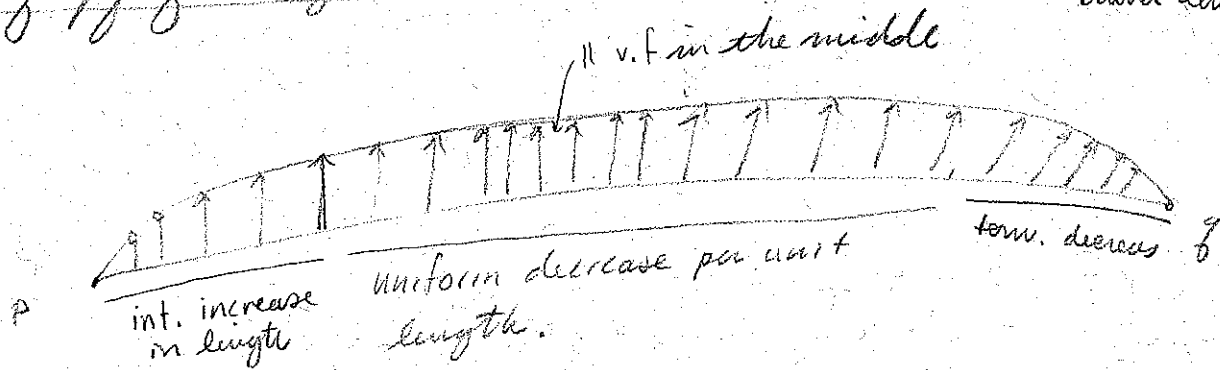 || v.f in the middle
P
int. increase
in length
Uniform decrease per unit
length.
term. decreas
q